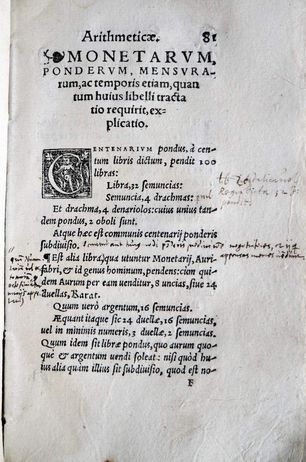 Arithmeticæ. 81
MONETARVM,
PONDERVM, MENSVRA-
rum, ac temporis etiam, quan
tum huius libelli tracta
tio requirit, ex-
plicatio.
CENTENARIVM pondus, à cen-
tum libris dictum, pendit 100
libras:
Libra, 32 semuncias:
Semuncia, 4 drachmas:
Et drachma, 4 denariolos: cuius unius tan-
dem pondus, 2 oboli sunt.
Atque hæc est communis centenarij ponderis
subdiuisio.
Est alia libra, qua utuntur Monetarij, Auri
fabri, & id genus hominum, pendens: cum qui-
dem Aurum per eam uenditur, 8 uncias, siue 24
duellas, Karat.
Quum uerò argentum, 16 semuncias.
Æquant itaque sic 24 duellæ, 16 semuncias,
uel in minimis numeris, 3 duellæ, 2 semuncias.
Quum idem sit libræ pondus, quo aurum quo-
que & argentum uendi soleat: nisi quòd hu-
ius alia quàm illius sit subdiuisio, quod est no-
F